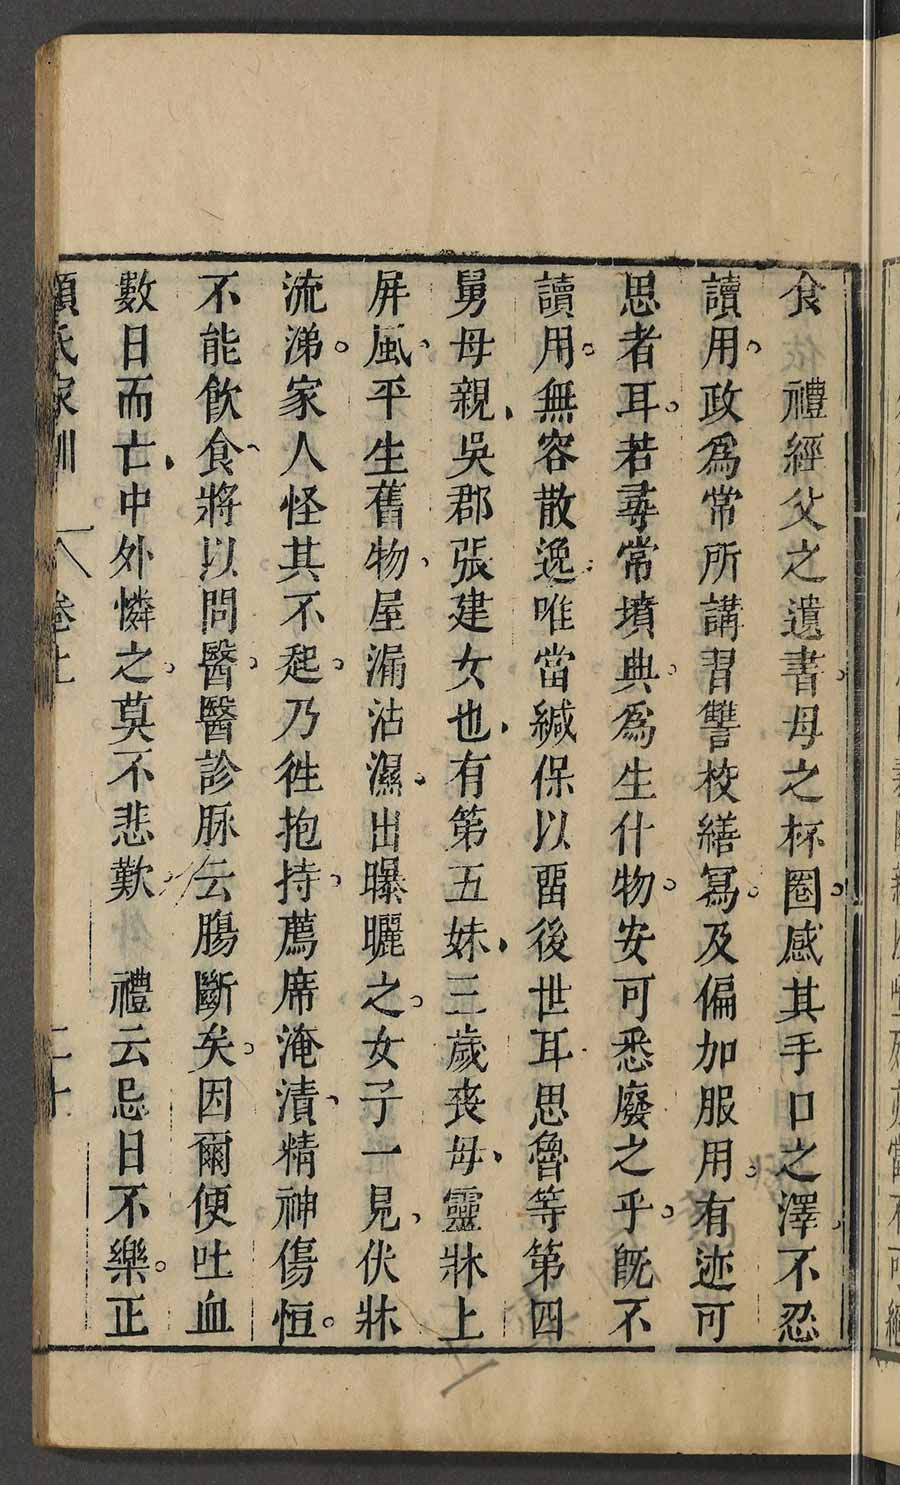 食 禮經父之遺書母之杯圈感其手口之澤不忍
讀用政爲常所講習讐校繕冩及偏加服用有迹可
思者耳若尋常墳典爲生什物安可悉廢之乎旣不
讀用無容散逸唯當緘保以畱後世耳思魯等第四
舅母親吳郡張建女也有第五妹三歲喪母靈牀上
屏風平生舊物屋漏沾濕出曝曬之女子一見伏牀
流涕家人怪其不起乃徃抱持薦席淹漬精神傷怛
不能飮食將以問醫醫診脉云腸斷矣因爾便吐血
數日而亡中外憐之莫不悲歎 禮云忌日不樂正
顏氏家訓 卷上 二十